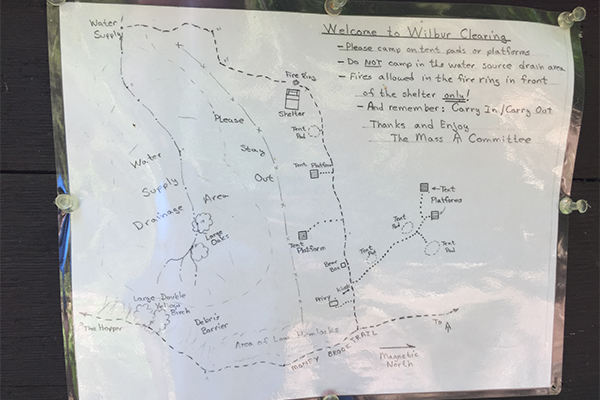 Welcome to Wilbur Clearing
- Please camp on tent pads or platforms
- Do NOT camp in the water source drain area
- Fires allowed in the fire ring in front
of the shelter only!
- And remember: Carry In/Carry Out
Thanks and Enjoy
The Mass AT Committee
Water
Supply
Fire Ring
Shelter
Tent
Pad
Please
Stay
Out
Tent Platform
Water
Supply
Drainage
Area
Large
Oaks
Tent
Platform
Tent
Platforms
Tent
Pad
Tent
Pad
Tent
Pad
Bear
Box
Kiosk
Privy
Large Double
Yellow
Birch
Debris
Barrier
The Hopper
Area of Low Hemlocks
MONEY BROOK TRAIL
To AT
Magnetic
North